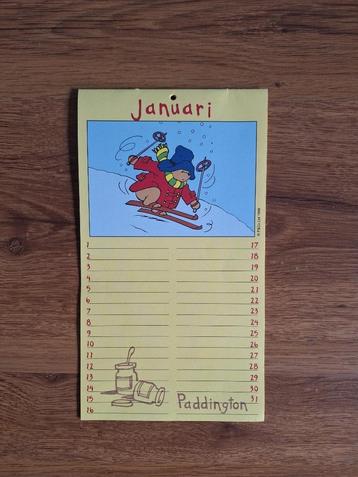 Januari
1
2
3
4
5
6
7
8
9
10
11
12
13
14
15
16
17
18
19
20
21
22
23
24
25
26
27
28
29
30
31
Paddington